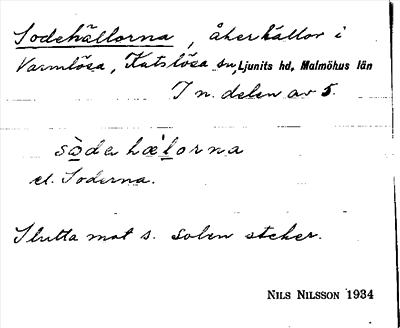 Sodehällorna, åkerhällor i
Varmlösa, Katslösa sn, Ljunits hd, Malmöhus län
I n. delen av 5.
sòde hæ̀lorna
el. Soderna.
Slutta mot s. Solen steker.
NILS NILSSON 1934